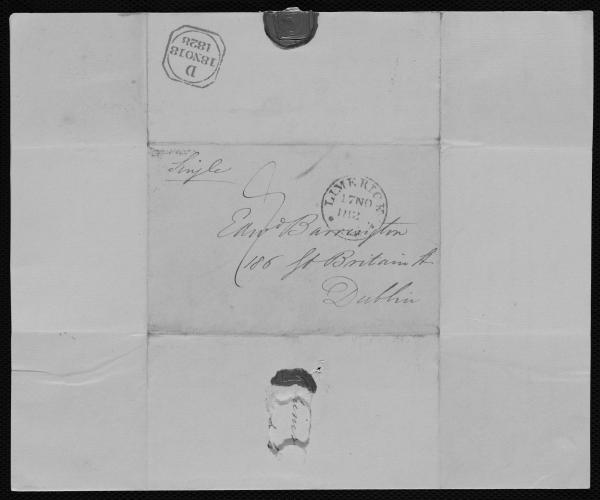 D
18NO18
1828
Single
LIMERICK
17NO
182
Edwd Barrington
186 Gt Britain St
Dublin